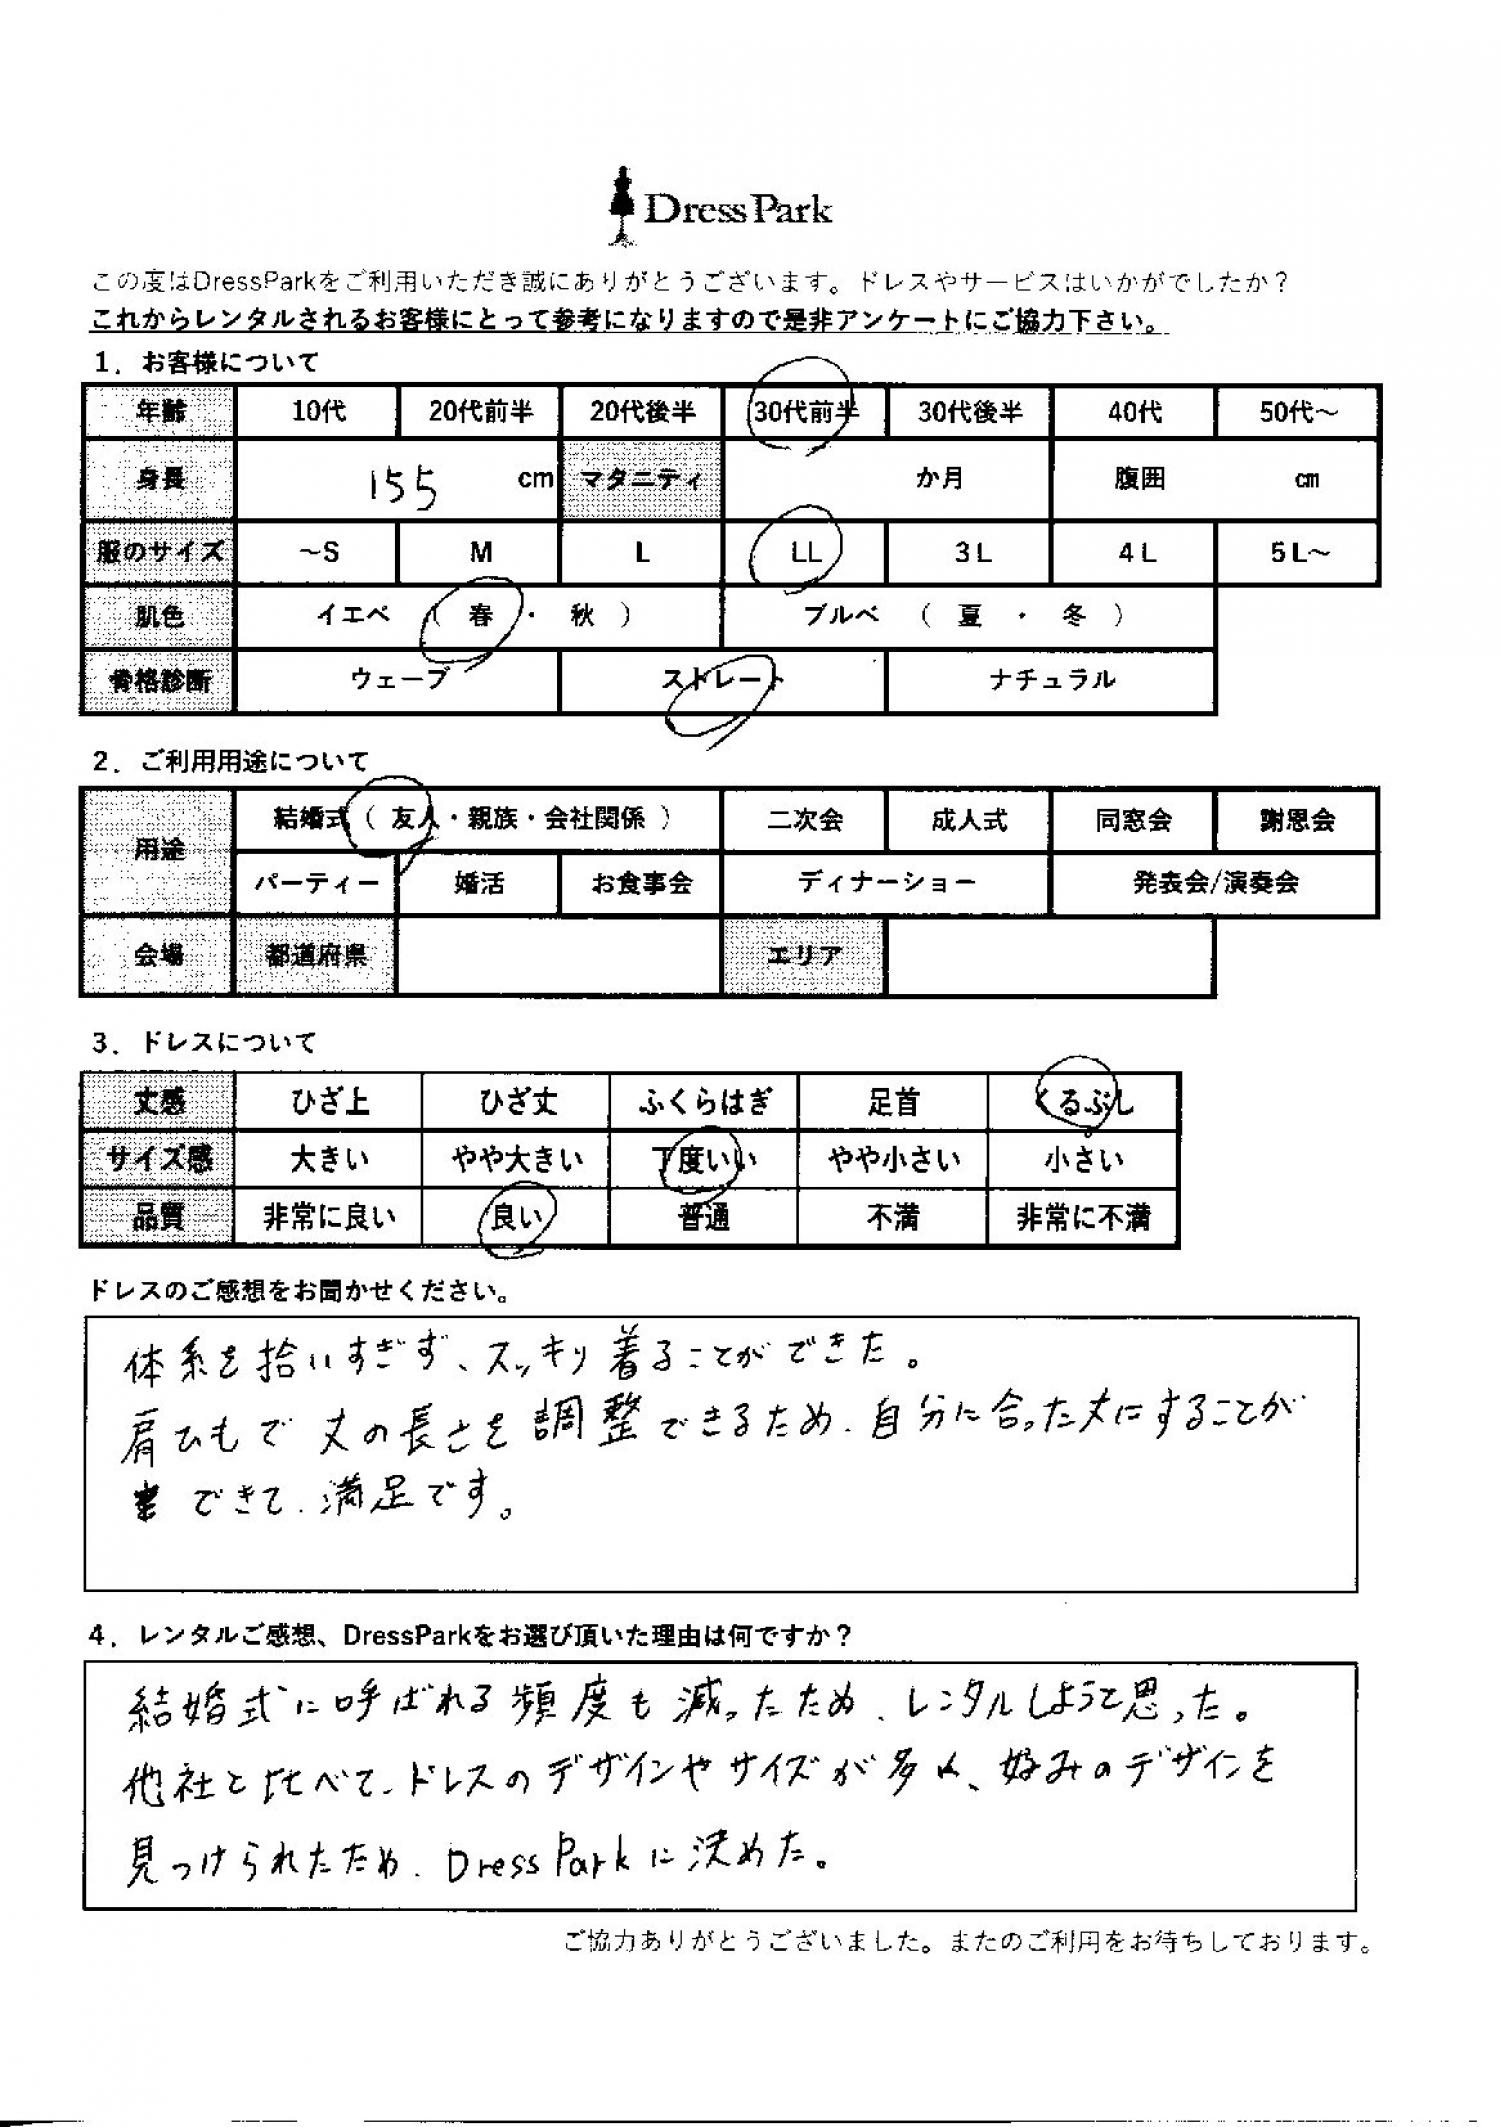 DressPark
この度はDressParkをご利用いただき誠にありがとうございます。ドレスやサービスはいかがでしたか？
これからレンタルされるお客様にとって参考になりますので是非アンケートにご協力下さい。
1．お客様について
年齢 10代 20代前半 20代後半 30代前半 30代後半 40代 50代～
身長 155 cm マタニティ か月 腹囲 cm
服のサイズ ～S M L LL 3L 4L 5L～
肌色 イエベ （ 春 ・ 秋 ） ブルベ （ 夏 ・ 冬 ）
骨格診断 ウェーブ ストレート ナチュラル
2．ご利用用途について
用途 結婚式（ 友人・親族・会社関係 ） 二次会 成人式 同窓会 謝恩会
パーティー 婚活 お食事会 ディナーショー 発表会/演奏会
会場 都道府県 エリア
3．ドレスについて
丈感 ひざ上 ひざ丈 ふくらはぎ 足首 くるぶし
サイズ感 大きい やや大きい 丁度いい やや小さい 小さい
品質 非常に良い 良い 普通 不満 非常に不満
ドレスのご感想をお聞かせください。
体系を拾いすぎず、スッキリ着ることができた。
肩ひもで丈の長さを調整できるため、自分に合った丈にすることが
できて、満足です。
4．レンタルご感想、DressParkをお選び頂いた理由は何ですか？
結婚式に呼ばれる頻度も減ったため、レンタルしようと思った。
他社と比べて、ドレスのデザインやサイズが多く、好みのデザインを
見つけられたため、DressParkに決めた。
ご協力ありがとうございました。またのご利用をお待ちしております。